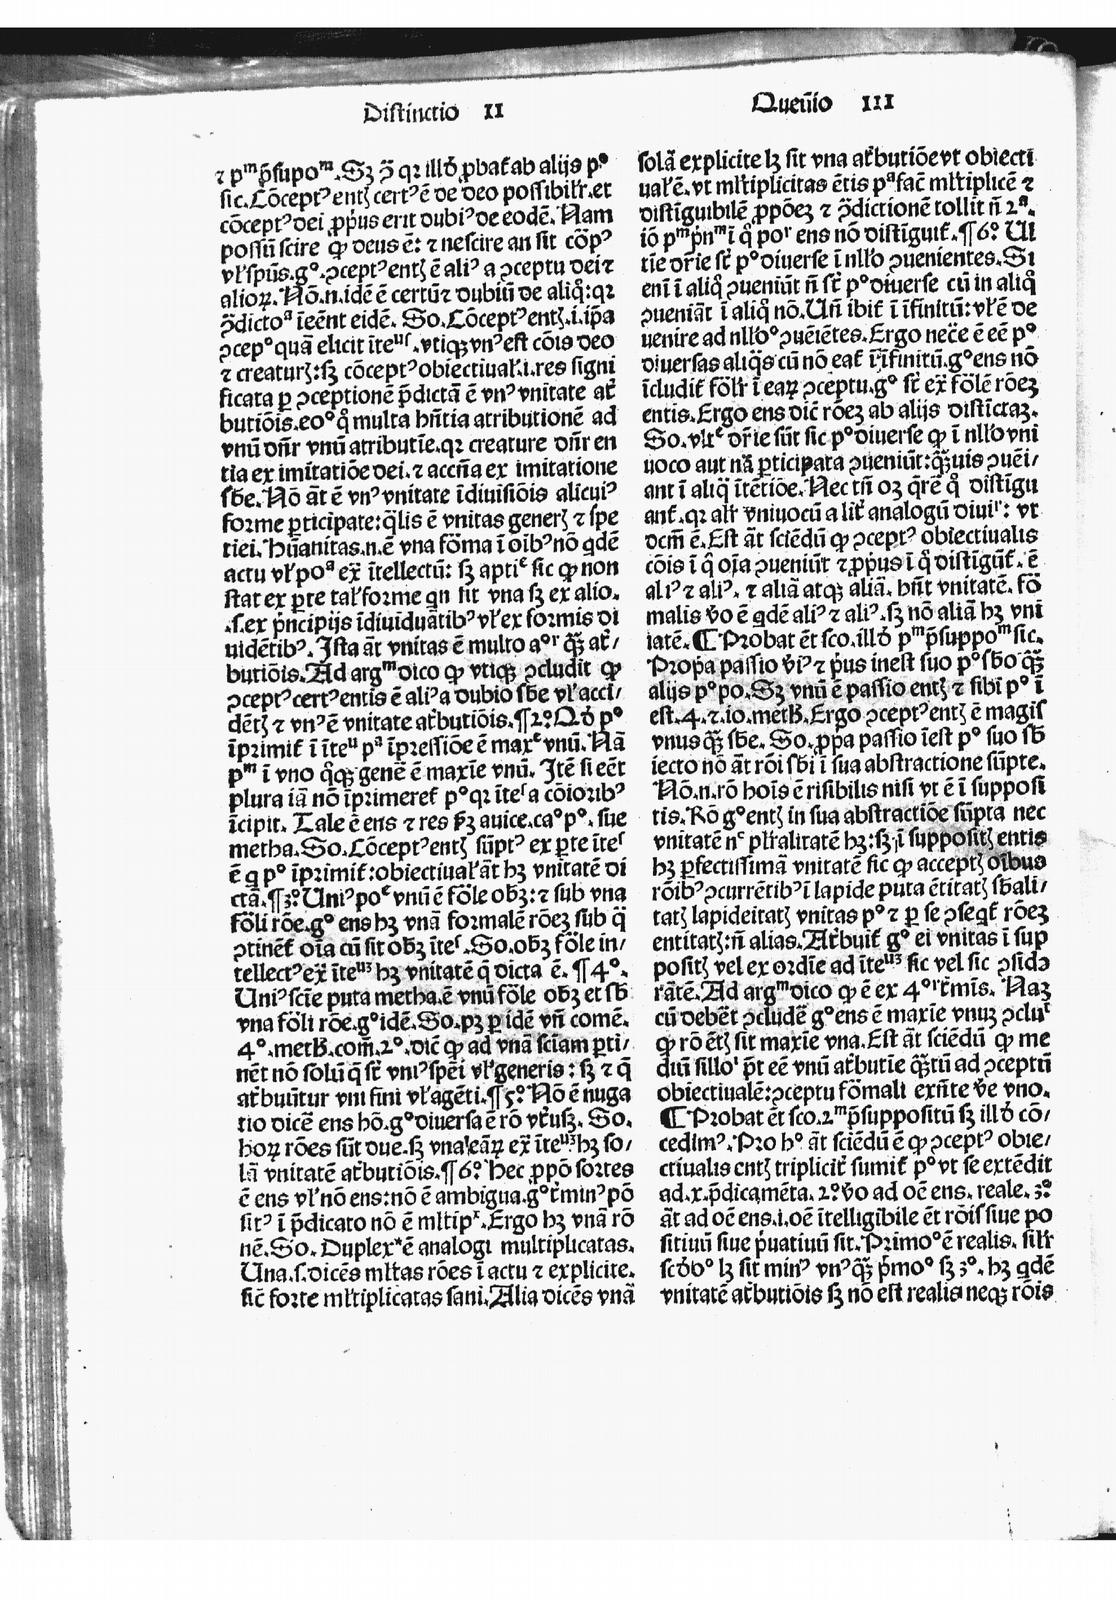 Distinctio II
Questio III
⁊ pᵐ p̄supoᵐ. Sꝫ ꝙ̄ qꝛ illđ ꝓbat̉ ab alijs pº
sic. Cōceptꝰ entꝭ certꝰ ē de deo possibilr̄. et
cōceptꝰ dei ꝓpr̄ius erit dubiꝰ de eodē. Nam
possū scire ꝙ deus ē: ⁊ nescire an sit cōpꝰ
vl̉ spūs. gº. ↄceptꝰ entꝭ ē aliꝰ a ↄceptu dei ⁊
alioꝝ. Nō .n. idē ē certū ⁊ dubiū de aliq̊: qꝛ
ꝯ̄dictoᵃ īeēnt eidē. So. Cōceptꝰ entꝭ .i. ip̄a
ↄcepº quā elicit īteᵘˢ. vtiqꝫ vnꝰ est cōis deo
⁊ creaturꝭ: sꝫ cōceptꝰ obiectiual̉ .i. res signi
ficata ꝑ ↄceptionē p̄dictā ē vnꝰ vnitate at̉
butiōis. eoº q̊ multa hn̄tia atributionē ad
vnū dn̄r vnū atributiē. qꝛ creature dn̄r en
tia ex imitatiōe dei. ⁊ accn̄a ex imitatione
sb̄e. Nō āt ē vnꝰ vnitate īdiuisiōis alicuiꝰ
forme ꝑticipate: q̄lis ē vnitas generꝭ ⁊ spe
tiei. Hūanitas .n. ē vna fōma ī oībꝰ nō qdē
actu vl̉ poᵃ ex̄ ītellectū: sꝫ aptiᵉ sic ꝙ non
stat ex ꝑte tal̉ forme qn sit vna sꝫ ex alio.
.s. ex p̄ncipijs īdiuiduātibꝰ vl̉ ex formis di
uidētibꝰ. Ista āt vnitas ē multo aºʳ q̄ꝫ at̉/
butiōis. Ad argᵐ dico ꝙ vtiqꝫ ↄcludit ꝙ
ↄceptꝰ certꝰ entis ē aliꝰ a dubio sb̄e vl̉ acci/
dētꝭ ⁊ vnꝰ ē vnitate at̉butiōis. ¶ 2º Qđ pº
īprimit̉ ī īteᵘ pᵃ īpressiōe ē maxᵉ vnū. Nā
pᵐ ī vno q̊qꝫ genē ē maxīe vnū. Itē si eēt
plura iā nō īprimeret̉ pº qꝛ īteˢ a cōioribꝰ
īcipit. Tale ē ens ⁊ res ẜꝫ auice. caº pº. sue
metha. So. Cōceptꝰ entꝭ sūptꝰ ex ꝑte īteˢ
ē q pº īprimit̉: obiectiual̉ āt hꝫ vnitatē di
ctā. ¶ 3º Uniꝰ poᵉ vnū ē fōle obꝫ: ⁊ sub vna
fōli rōe. gº ens hꝫ vnā formalē rōeꝫ sub q̄
ↄtinēt oīa cū sit obꝫ īteˢ. So. obꝫ fōle in/
tellectꝰ ex̄ īteᵘᶾ hꝫ vnitatē q̄ dicta ē. ¶ 4º.
Uniꝰ scīe puta metha. ē vnū fōle obꝫ et sb̄
vna fōli rōe. gº idē. So. pꝫ ꝑ idē vn̄ comē.
4º. meth. com̄. 2º. dic̄ ꝙ ad vnā sciam ꝑti/
nēt nō solū q̄ st̄ vniꝰ spēi vl̉ generis: sꝫ ⁊ q̄
at̉buūtur vni fini vl̉ agēti. ¶ 5º Nō ē nuga
tio dicē ens hō. gº diuersa ē rō vt̉usqꝫ. So.
hoꝝ rōes sūt due. sꝫ vna eaꝝ ex̄ īteᵘᶾ hꝫ so/
lā vnitatē at̉butiōis. ¶ 6º Hec ꝓpō sortes
ē ens vl̉ nō ens: nō ē ambigua. gº t̉minꝰ pō
sitꝰ ī p̄dicato nō ē ml̉tipˣ. Ergo hꝫ vnā rō
nē. So. Duplexˣ ē analogi multiplicatas.
Una .s. dicēs ml̉tas rōes ī actu ⁊ explicite.
sic̄ forte ml̉tiplicatas sani. Alia dicēs vnā
solā explicite lꝫ sit vna at̉butiōe vt obiecti
ual̉ ē. vt ml̉tiplicitas ētis pᵃ fac̄ ml̉tiplicē ⁊
distīguibilē ꝓpōeꝫ ⁊ ꝯ̄dictionē tollit n̄ 2ᵃ.
iō pᵐ pn̄ᵐ ī q̊ poʳ ens nō distīguit̉. ¶ 6º Ul
tīe dr̄ie st̄ pº diuerse ī nll̉o ↄuenientes. Si
enī ī aliq̊ ↄueniūt n̄ st̄ pº diuerse cū in aliq̊
ↄueniāt ī aliq̊ nō. Un̄ ibit̉ ī īfinitū: vl̉ ē de
uenire ad nll̉oº ↄuēiētes. Ergo necē ē eē pº
diuersas aliq̄s cū nō eat̉ ī īfinitū. gº ens nō
īcludit̉ fōlr̄ ī eaꝝ ↄceptu. gº st̄ ex̄ fōlē rōeꝫ
entis. Ergo ens dic̄ rōeꝫ ab alijs distīctaꝫ.
So. vlt̉ᵉ dr̄ie sūt sic pº diuerse ꝙ ī nll̉o vni
uoco aut nā ꝑticipata ↄueniūt: q̄ꝫuis ↄuēi/
ant ī aliq̄ ītētiōe. Nec tn̄ oꝫ q̄rē q̊ distīgu
ant̉. qꝛ alr̄ vniuocū alit̄ analogū diuiʳ: vt
dcm̄ ē. Est āt sciēdū ꝙ ↄceptꝰ obiectiualis
cōis ī q̊ oīa ↄueniūt ⁊ ꝓpr̄ius ī q̊ distīgūt̉. ē
aliꝰ ⁊ aliꝰ. ⁊ aliā atqꝫ aliā. hn̄t vnitatē. fō
malis v̊o ē qdē aliꝰ ⁊ aliꝰ. sꝫ nō aliā hꝫ vni
tatē. ¶ Probat ēt sco. illđ pᵐ p̄suppoᵐ sic.
Prop̄a passio v̄iꝰ ⁊ p̄us inest suo pº sb̄o q̄ꝫ
alijs pº po. Sꝫ vnū ē passio entꝭ ⁊ sibi pº ī
est. 4. ⁊ .10. meth. Ergo ↄceptꝰ entꝭ ē magis
vnus q̄ꝫ sb̄e. So. ꝓpa passio īest pº suo sb̄
iecto nō āt rōi sb̄i ī sua abstractione sūpte.
Nō .n. rō hoīs ē risibilis nisi vt ē ī supposi
tis. Rō gº entꝭ in sua abstractiōe sūpta nec
vnitatē nᶜ pl̉ralitatē hꝫ: sꝫ ī suppositꝭ entis
hꝫ ꝑfectissimā vnitatē sic ꝙ acceptꝭ oībus
rōibꝰ ↄcurrētibꝰ ī lapide puta ētitatꝭ sb̄ali/
tatꝭ lapideitatꝭ vnitas pº ⁊ ꝑ se ↄseqt̉ rōeꝫ
entitatꝭ: n̄ alias. At̉buit̉ gº ei vnitas ī sup
positꝭ vel ex ordīe ad īteᵘᶾ sic vel sic ↄside
ratē. Ad argᵐ dico ꝙ ē ex 4ºʳ t̉mīs. Naꝫ
cū debēt ↄcludē gº ens ē maxīe vnuꝫ ↄcluᵗ
ꝙ rō ētꝭ sit maxīe vna. Est āt sciēdū ꝙ me
diū silloⁱ p̄t eē vnū at̉butīe q̄ꝫtū ad ↄceptū
obiectiualē: ↄceptu fōmali exn̄te v̄e vno.
¶ Probat ēt sco. 2ᵐ p̄suppositū sꝫ illđ cō/
cedimꝰ. Pro hº āt sciēdū ē ꝙ ↄceptꝰ obie/
ctiualis entꝭ triplicit̄ sumit̉ pº vt se extēdit
ad .x. p̄dicamēta. 2º v̊o ad oē ens. reale. 3º
āt ad oē ens .i. oē ītelligibile ēt rōis siue po
sitiuū siue p̄uatiuū sit. Primoº ē realis. silr̄
scđoº lꝫ sit minꝰ vnꝰ q̄ꝫ p̄moº sꝫ 3º. hꝫ qdē
vnitatē at̉butiōis sꝫ nō est realis neqꝫ rōis